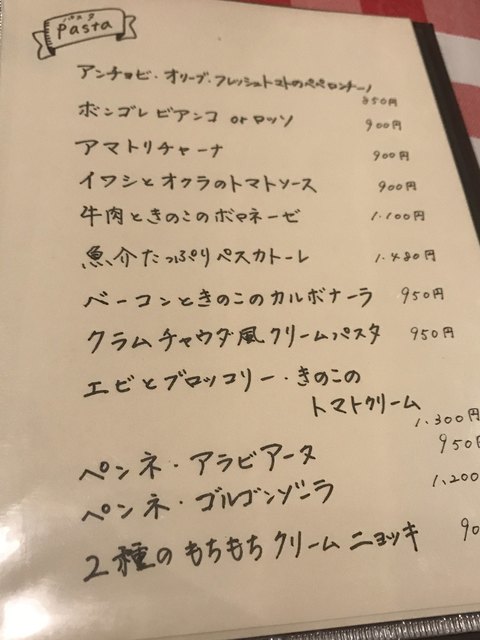 パスタ
Pasta
アンチョビ・オリーブ・フレッシュトマトのペペロンチーノ
850円
ボンゴレ ビアンコ or ロッソ 900円
アマトリチャーナ 900円
イワシとオクラのトマトソース 900円
牛肉ときのこのボロネーゼ 1.100円
魚介たっぷりペスカトーレ 1.480円
ベーコンときのこのカルボナーラ 950円
クラムチャウダ風クリームパスタ 950円
エビとブロッコリー・きのこの
トマトクリーム
1.300円
ペンネ・アラビアータ 950円
ペンネ・ゴルゴンゾーラ 1,200
2種のもちもちクリームニョッキ 90